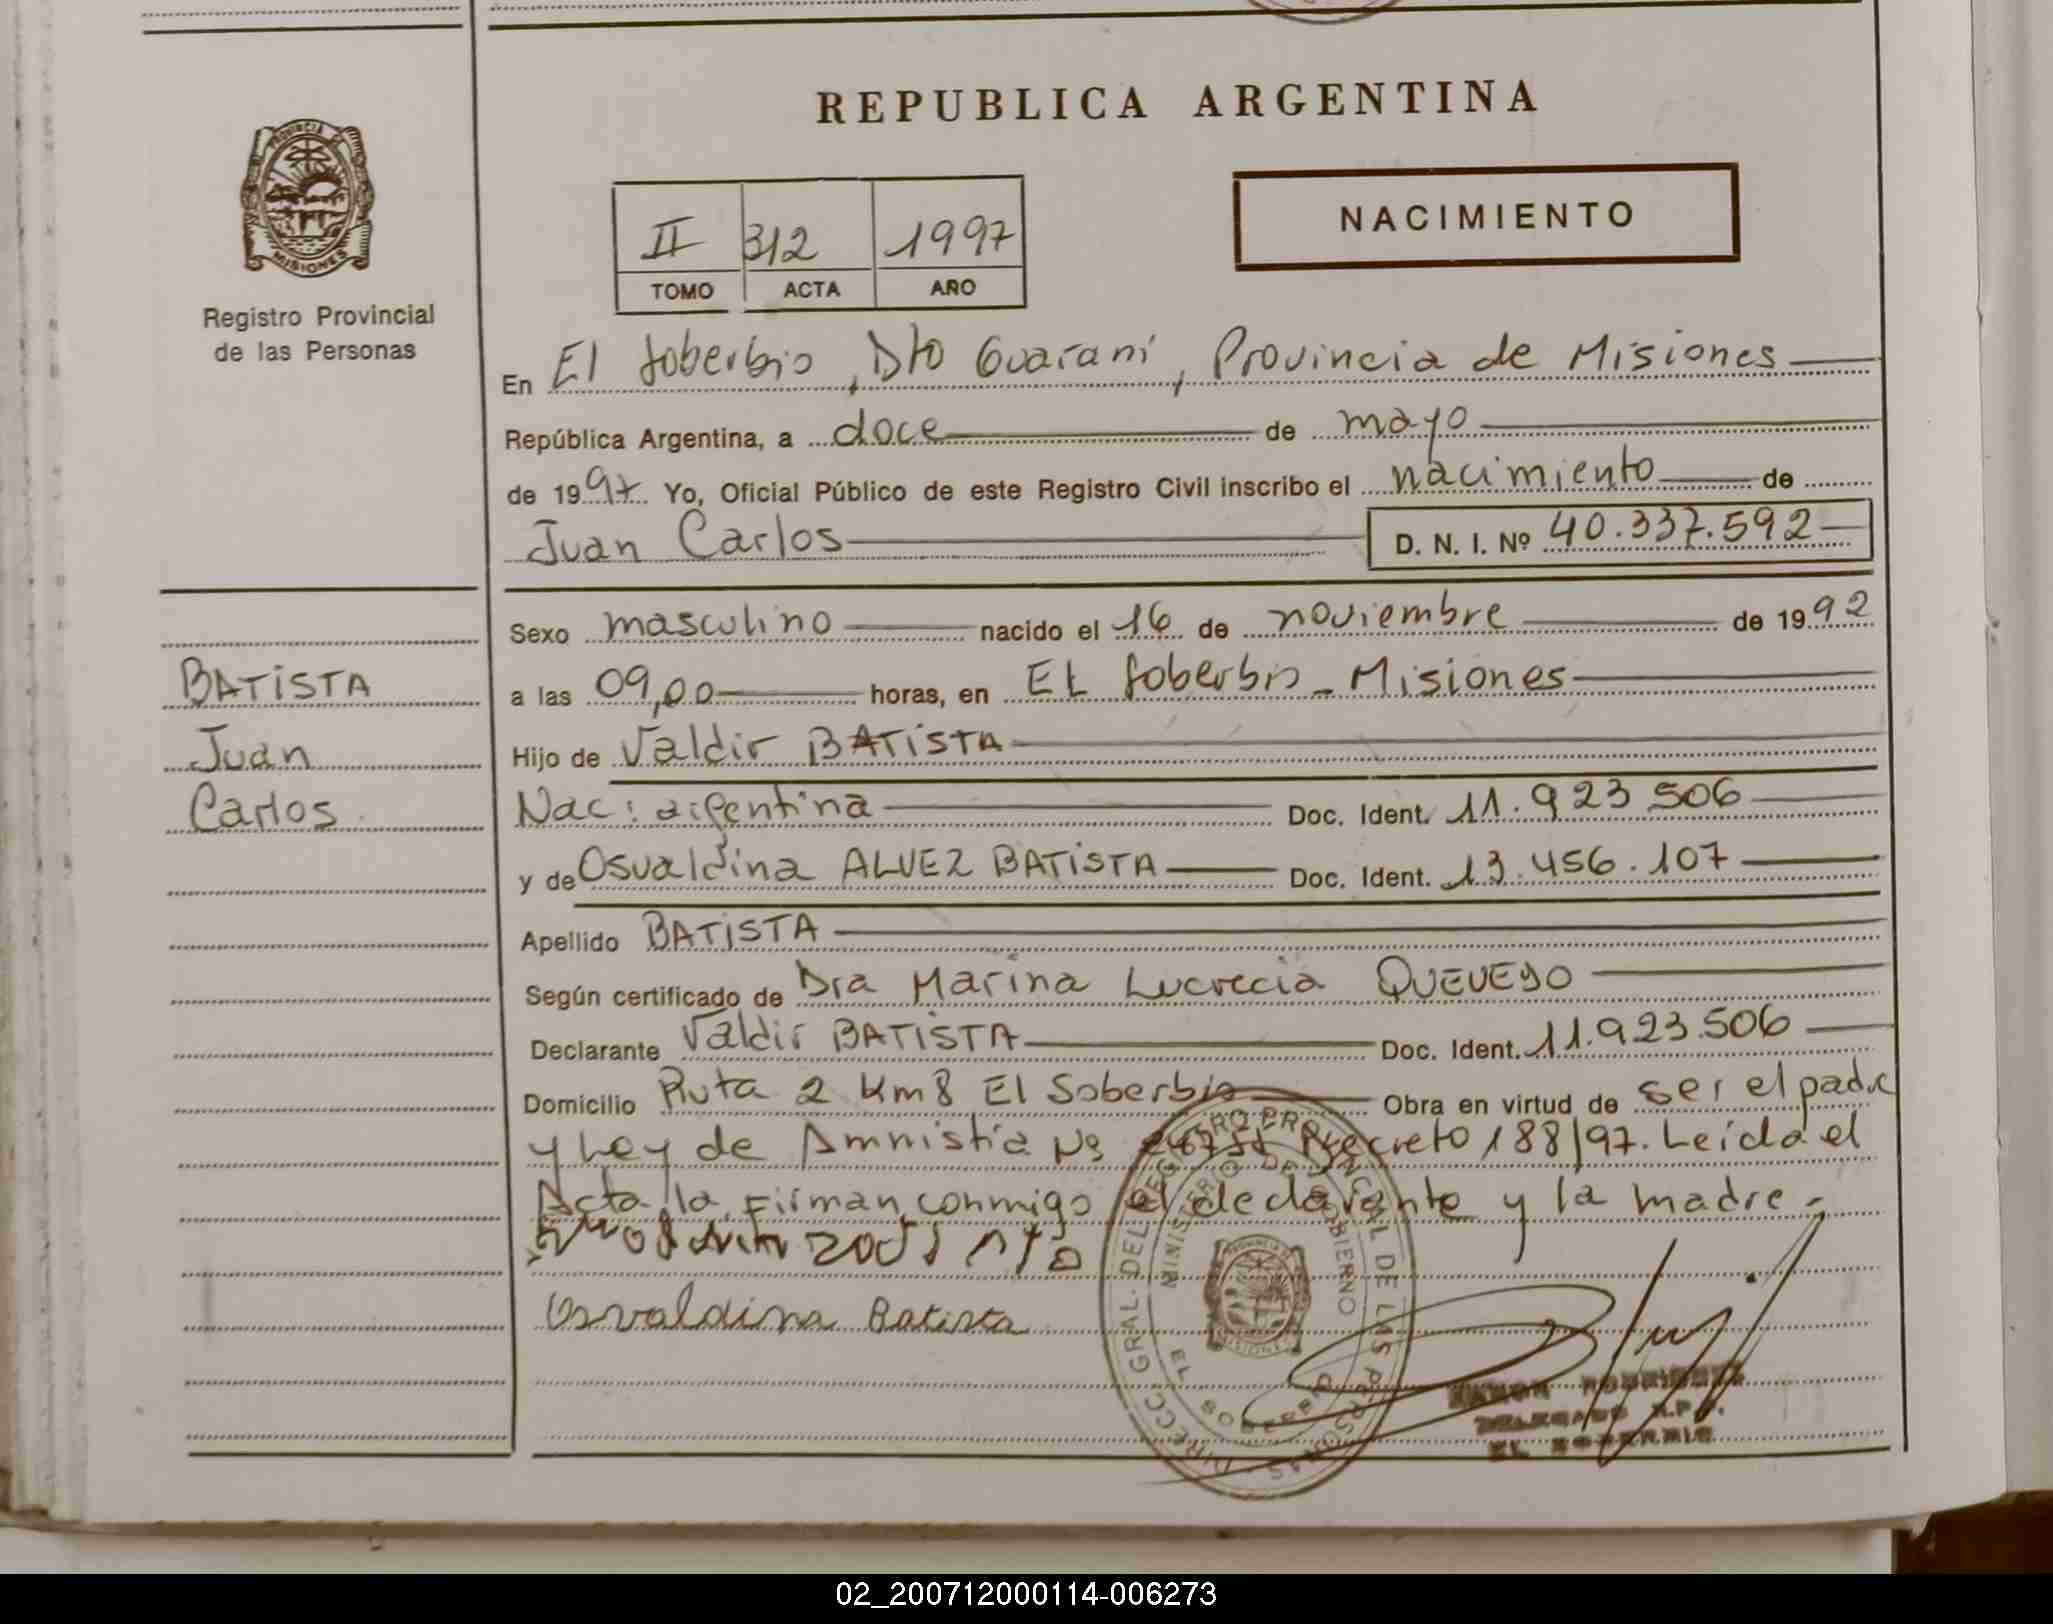 REPUBLICA ARGENTINA
PROVINCIA DE
MISIONES
Registro Provincial
de las Personas
II 312 1997
TOMO ACTA AÑO
NACIMIENTO
En El Soberbio, Dto Guaraní, Provincia de Misiones
República Argentina, a doce de mayo
de 1997 Yo, Oficial Público de este Registro Civil inscribo el nacimiento de
Juan Carlos D. N. I. Nº 40.337.592
Sexo masculino nacido el 16 de noviembre de 1992
a las 09,00 horas, en EL Soberbio - Misiones
Hijo de Valdir BATISTA
Nac: argentina Doc. Ident. 11.923 506
y de Osvaldina ALVEZ BATISTA Doc. Ident. 13.456.107
Apellido BATISTA
Según certificado de Dra Marina Lucrecia QUEVEDO
Declarante Valdir BATISTA Doc. Ident. 11.923.506
Domicilio Ruta 2 Km 8 El Soberbio Obra en virtud de ser el padre
y Ley de Amnistia Nº Decreto 188/97. Leída el
Acta, la firman conmigo el declarante y la madre.
Osvaldina Batista
BATISTA
Juan
Carlos
DIRECC. GRAL. DEL REGISTRO PROVINCIAL DE LAS PERSONAS
MINISTERIO DE GOBIERNO
EL SOBERBIO
PROVINCIA DE
MISIONES
RAMON RODRIGUEZ
DELEGADO R.P.P.
EL SOBERBIO
02_200712000114-006273